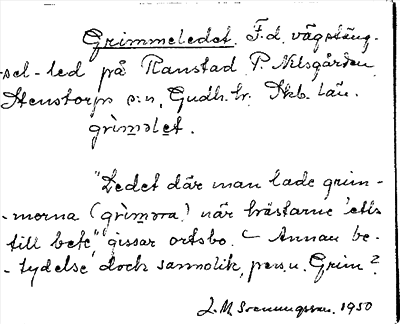 Grimmeledet. F.d. vägstäng-
-sel-led på Ranstad P. Nilsgården
Stenstorps s:n, Gudh. hr. Skb. län.
grìmǝlet.
"Ledet där man lade grim-
-morna (grìmɷra) när hästarne 'etts
till bete", gissar ortsbo. – Annan be-
-tydelse dock sannolik, pers.n. Grim?
L. M. Svenungsson. 1950